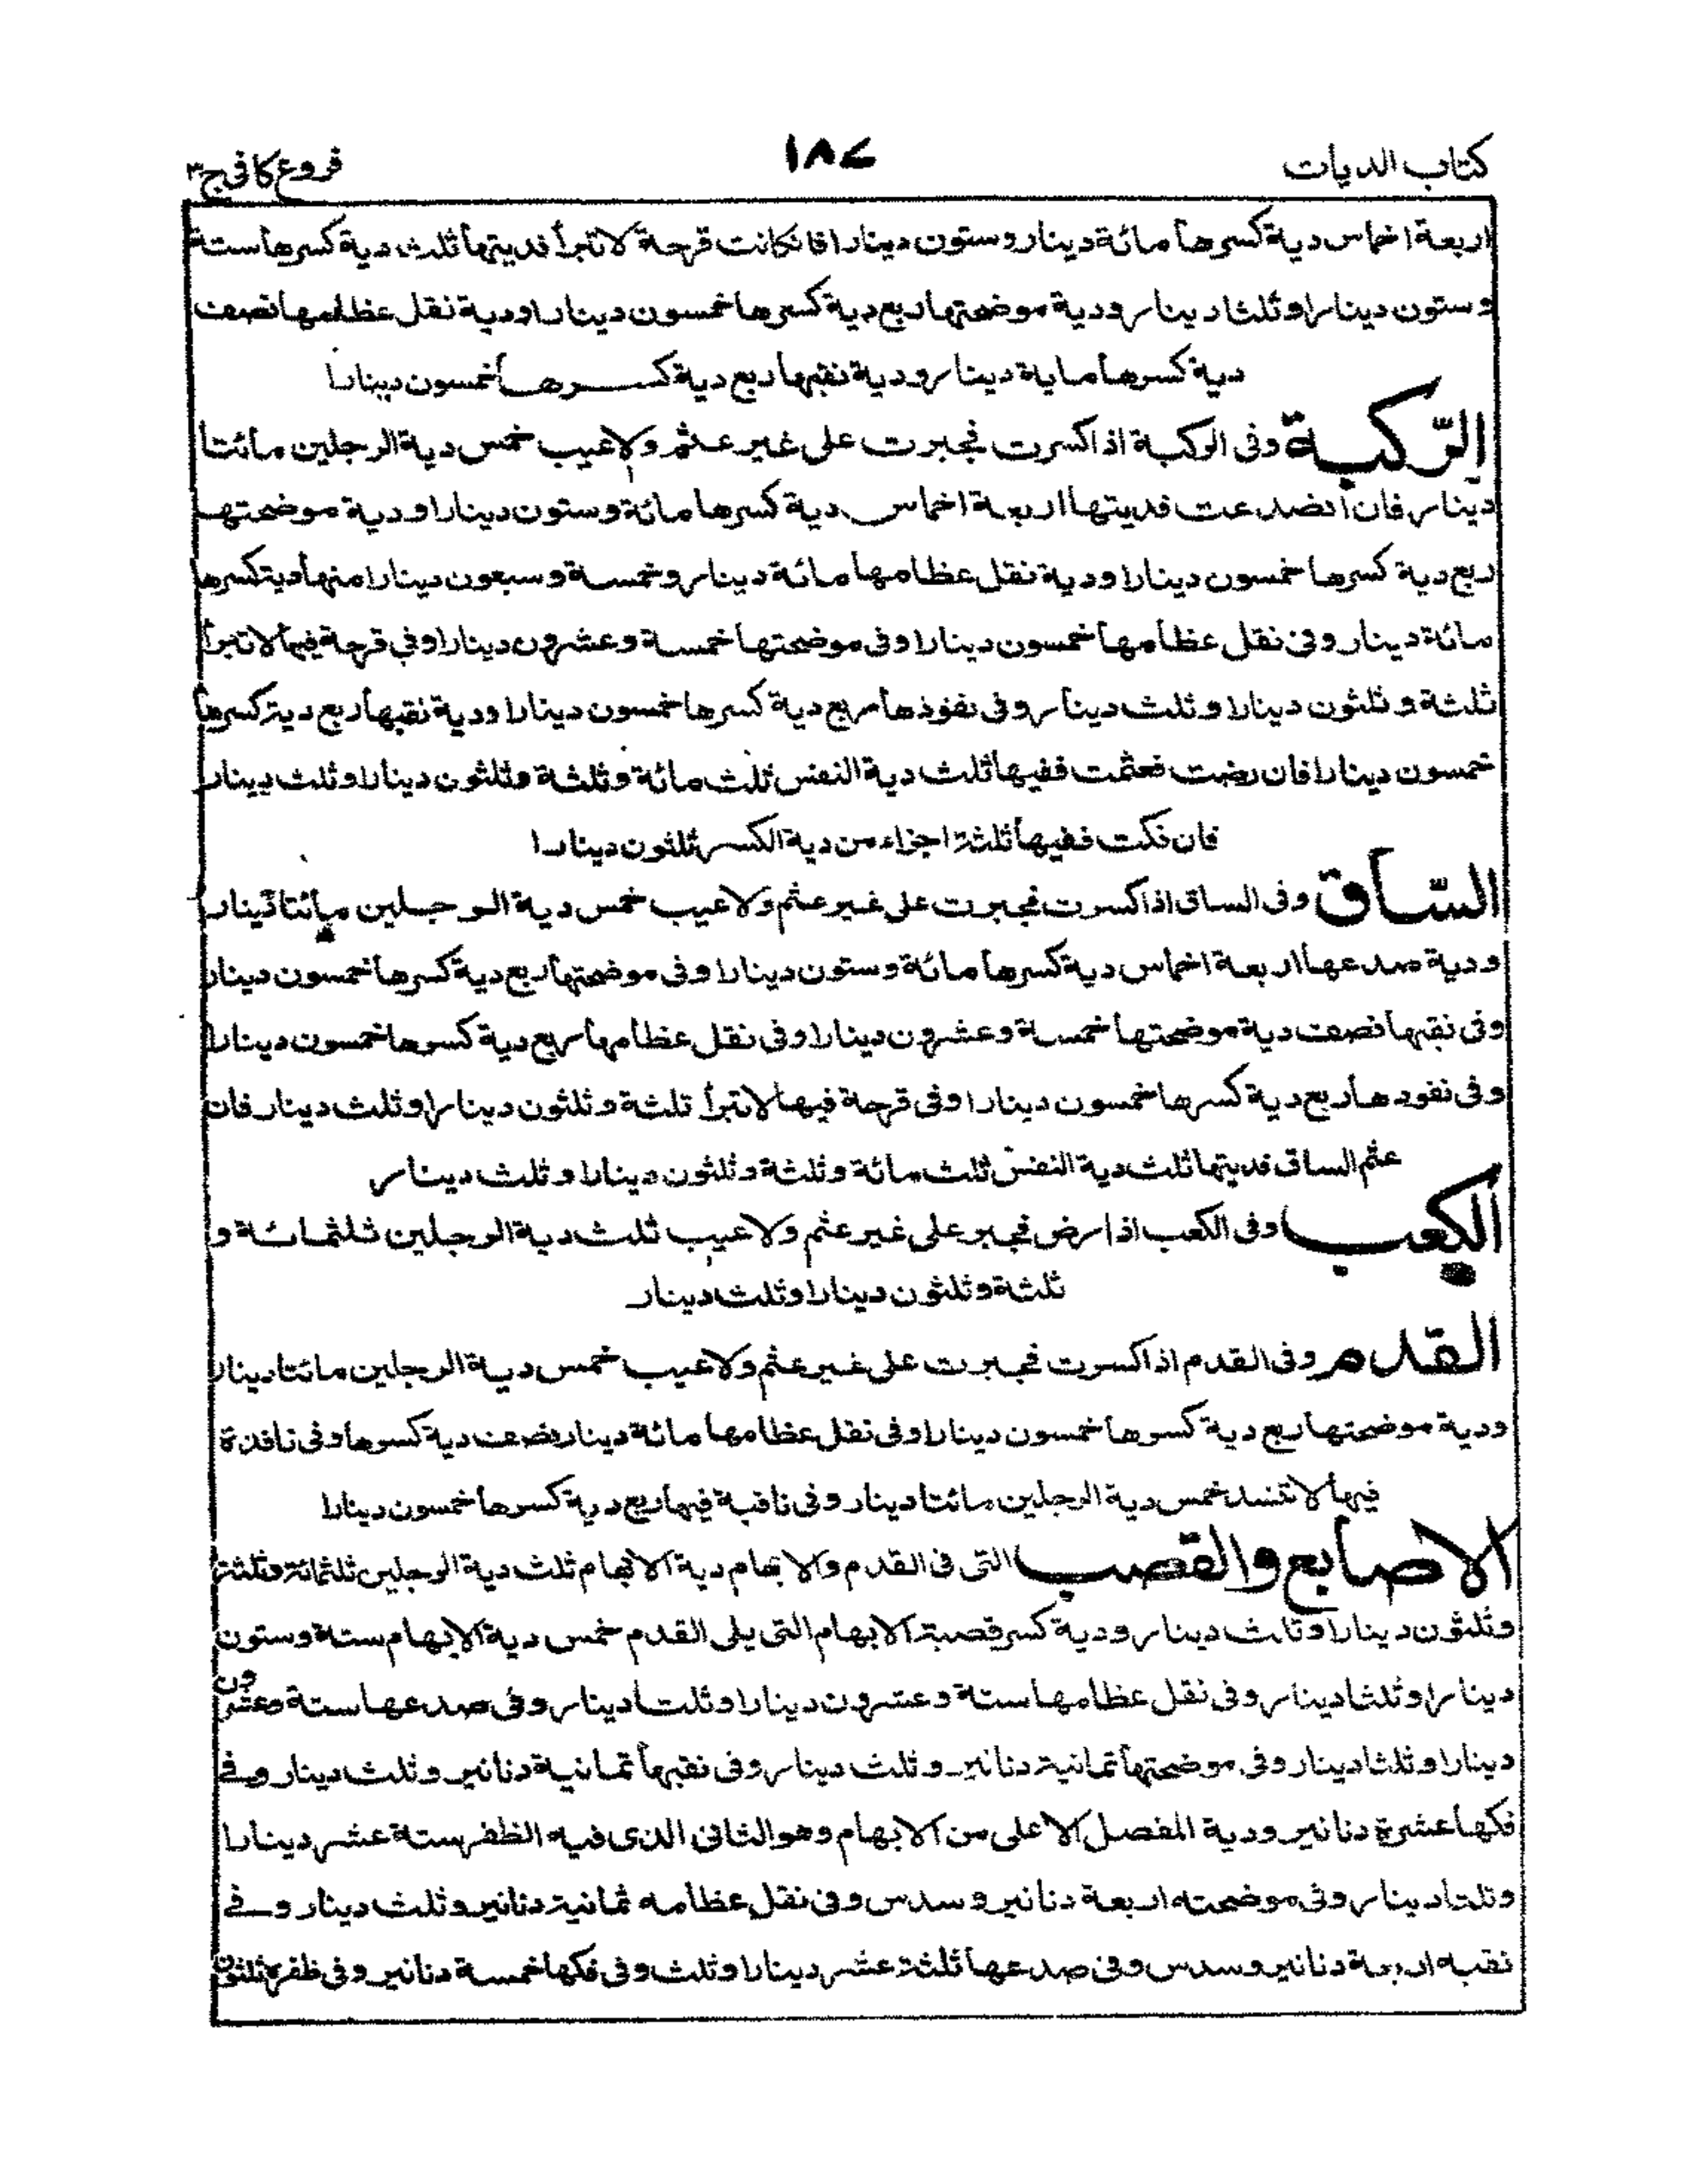 كتاب الديات
١٨٧
فروع كافى ج٣
اربعة اخماس دية كسرها مائة دينار وستون دينارا فان كانت قرحة لا تبرأ فديتها ثلث دية كسرها ستة
وستون دينارا وثلثا دينار ودية موضحتها ربع دية كسرها خمسون دينارا ودية نقل عظامها نصف
دية كسرها ماية دينار ودية نقبها ربع دية كسرها خمسون دينارا
الرّكبة وفى الركبة اذا كسرت فجبرت على غير عثم ولا عيب خمس دية الرجلين مائتا
دينار فان انصدعت فديتها اربعة اخماس دية كسرها مائة وستون دينارا ودية موضحتها
ربع دية كسرها خمسون دينارا ودية نقل عظامها مائة دينار وخمسة وسبعون دينارا منها دية كسرها
مائة دينار وفى نقل عظامها خمسون دينارا وفى موضحتها خمسة وعشرون دينارا وفي قرحة فيها لا تبرأ
ثلثة وثلثون دينارا وثلث دينار وفى نفوذها ربع دية كسرها خمسون دينارا ودية نقبها ربع دية كسرها
خمسون دينارا فان رضت فعثمت ففيها ثلث دية النفس ثلث مائة وثلثة وثلثون دينارا وثلث دينار
فان فكت ففيها ثلثة اجزاء من دية الكسر ثلثون دينارا
السّاق وفى الساق اذا كسرت فجبرت على غير عثم ولا عيب خمس دية الرجلين مائتا دينار
ودية صدعها اربعة اخماس دية كسرها مائة وستون دينارا وفى موضحتها ربع دية كسرها خمسون دينار
وفى نقبها نصف دية موضحتها خمسة وعشرون دينارا وفى نقل عظامها ربع دية كسرها خمسون دينارا
وفى نفوذها ربع دية كسرها خمسون دينارا وفى قرحة فيها لا تبرأ ثلثة وثلثون دينارا وثلث دينار فان
عثم الساق فديتها ثلث دية النفس ثلث مائة وثلثة وثلثون دينارا وثلث دينار
الكعب وفى الكعب اذا رض فجبر على غير عثم ولا عيب ثلث دية الرجلين ثلثمائة و
ثلثة وثلثون دينارا وثلث دينار
القدم وفى القدم اذا كسرت فجبرت على غير عثم ولا عيب خمس دية الرجلين مائتا دينار
ودية موضحتها ربع دية كسرها خمسون دينارا وفى نقل عظامها مائة دينار نصف دية كسرها وفى نافذة
فيها لا تنسد خمس دية الرجلين مائتا دينار وفى ناقبة فيها ربع دية كسرها خمسون دينارا
الاصابع والقصب التى فى القدم والابهام دية الابهام ثلث دية الرجلين ثلثمائة وثلثة
وثلثون دينارا وثلث دينار ودية كسر قصبة الابهام التى يلى القدم خمس دية الابهام ستة وستون
دينارا وثلثا دينار وفى نقل عظامها ستة وعشرون دينارا وثلثا دينار وفى صدعها ستة وعشرون
دينارا وثلثا دينار وفى موضحتها ثمانية دنانير وثلث دينار وفى نقبها ثمانية دنانير وثلث دينار وفى
فكها عشرة دنانير ودية المفصل الاعلى من الابهام وهو الثانى الذى فيه الظفر ستة عشر دينارا
وثلثا دينار وفى موضحته اربعة دنانير وسدس وفى نقل عظامه ثمانية دنانير وثلث دينار وفى
نقبه اربعة دنانير وسدس وفى صدعها ثلثة عشر دينارا وثلث وفى فكها خمسة دنانير وفى ظفره ثلثون